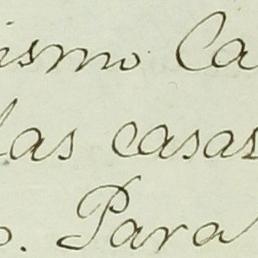 ismo Ca
las casas
o. Para